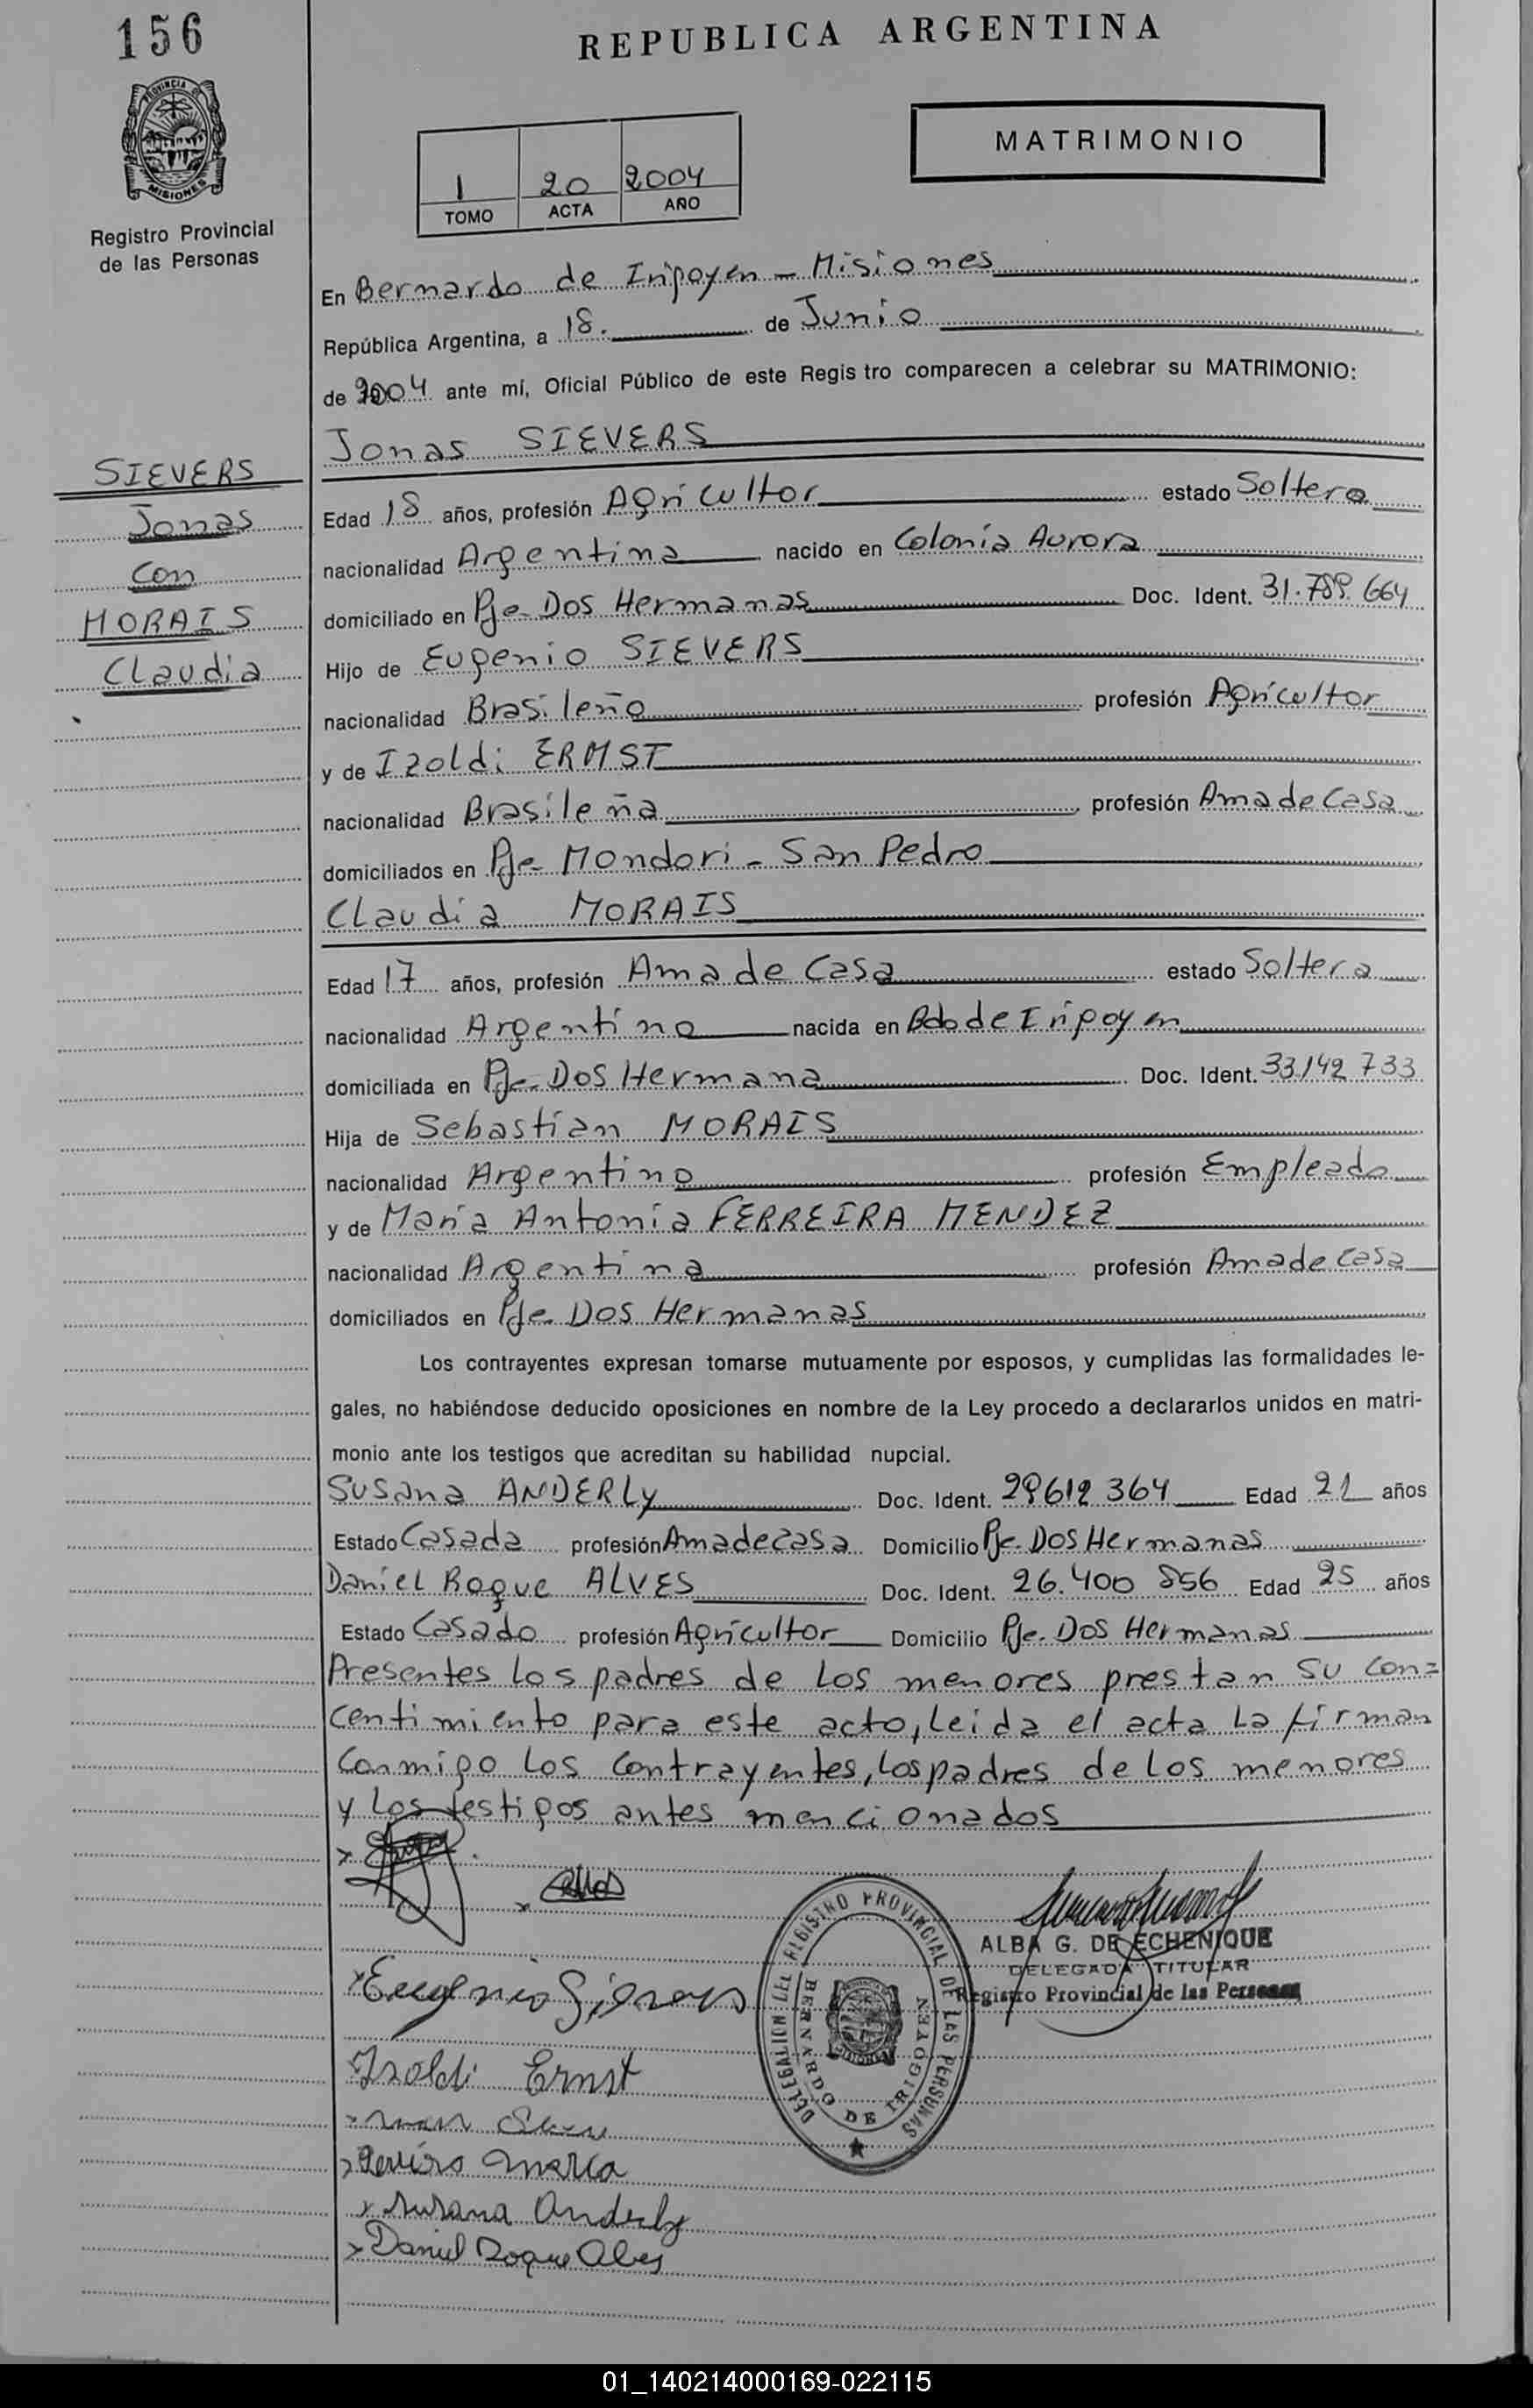 156
REPUBLICA ARGENTINA
PROVINCIA DE
MISIONES
Registro Provincial
de las Personas
1 20 2004
TOMO ACTA AÑO
MATRIMONIO
En Bernardo de Irigoyen - Misiones
República Argentina, a 18. de Junio
de 2004 ante mí, Oficial Público de este Regis tro comparecen a celebrar su MATRIMONIO:
Jonas SIEVERS
SIEVERS
Jonas
Con
MORAIS
Claudia
Edad 18 años, profesión Agricultor estado Soltero
nacionalidad Argentina nacido en Colonia Aurora
domiciliado en Pje- Dos Hermanas Doc. Ident. 31.789.664
Hijo de Eugenio SIEVERS
nacionalidad Brasileño profesión Agricultor
y de Izoldi ERMST
nacionalidad Brasileña profesión Ama de Casa
domiciliados en Pje- Mondori - San Pedro
Claudia MORAIS
Edad 17 años, profesión Ama de Casa estado Soltera
nacionalidad Argentino nacida en Bdo de Irigoyen
domiciliada en Pje- Dos Hermana Doc. Ident. 33.142 733
Hija de Sebastian MORAIS
nacionalidad Argentino profesión Empleado
y de Maria Antonia FERREIRA MENDEZ
nacionalidad Argentina profesión Ama de casa
domiciliados en Pje- Dos Hermanas
Los contrayentes expresan tomarse mutuamente por esposos, y cumplidas las formalidades le-
gales, no habiéndose deducido oposiciones en nombre de la Ley procedo a declararlos unidos en matri-
monio ante los testigos que acreditan su habilidad nupcial.
Susana ANDERLY Doc. Ident. 29612 364 Edad 21 años
Estado Casada profesión Ama de casa Domicilio Pje- Dos Hermanas
Daniel Roque ALVES Doc. Ident. 26.400 856 Edad 25 años
Estado Casado profesión Agricultor Domicilio Pje- Dos Hermanas
Presentes los padres de los menores prestan su con=
centimiento para este acto, leida el acta la firman
conmigo los contrayentes, los padres de los menores
y los testigos antes mencionados
ALBA G. DE ECHENIQUE
DELEGADA TITULAR
Registro Provincial de las Personas
DELEGACION DEL REGISTRO PROVINCIAL DE LAS PERSONAS
BERNARDO DE IRIGOYEN
Eugenio Sievers
Izoldi Ernst
Maria
Susana Anderly
Daniel Roque Alves
01_140214000169-022115